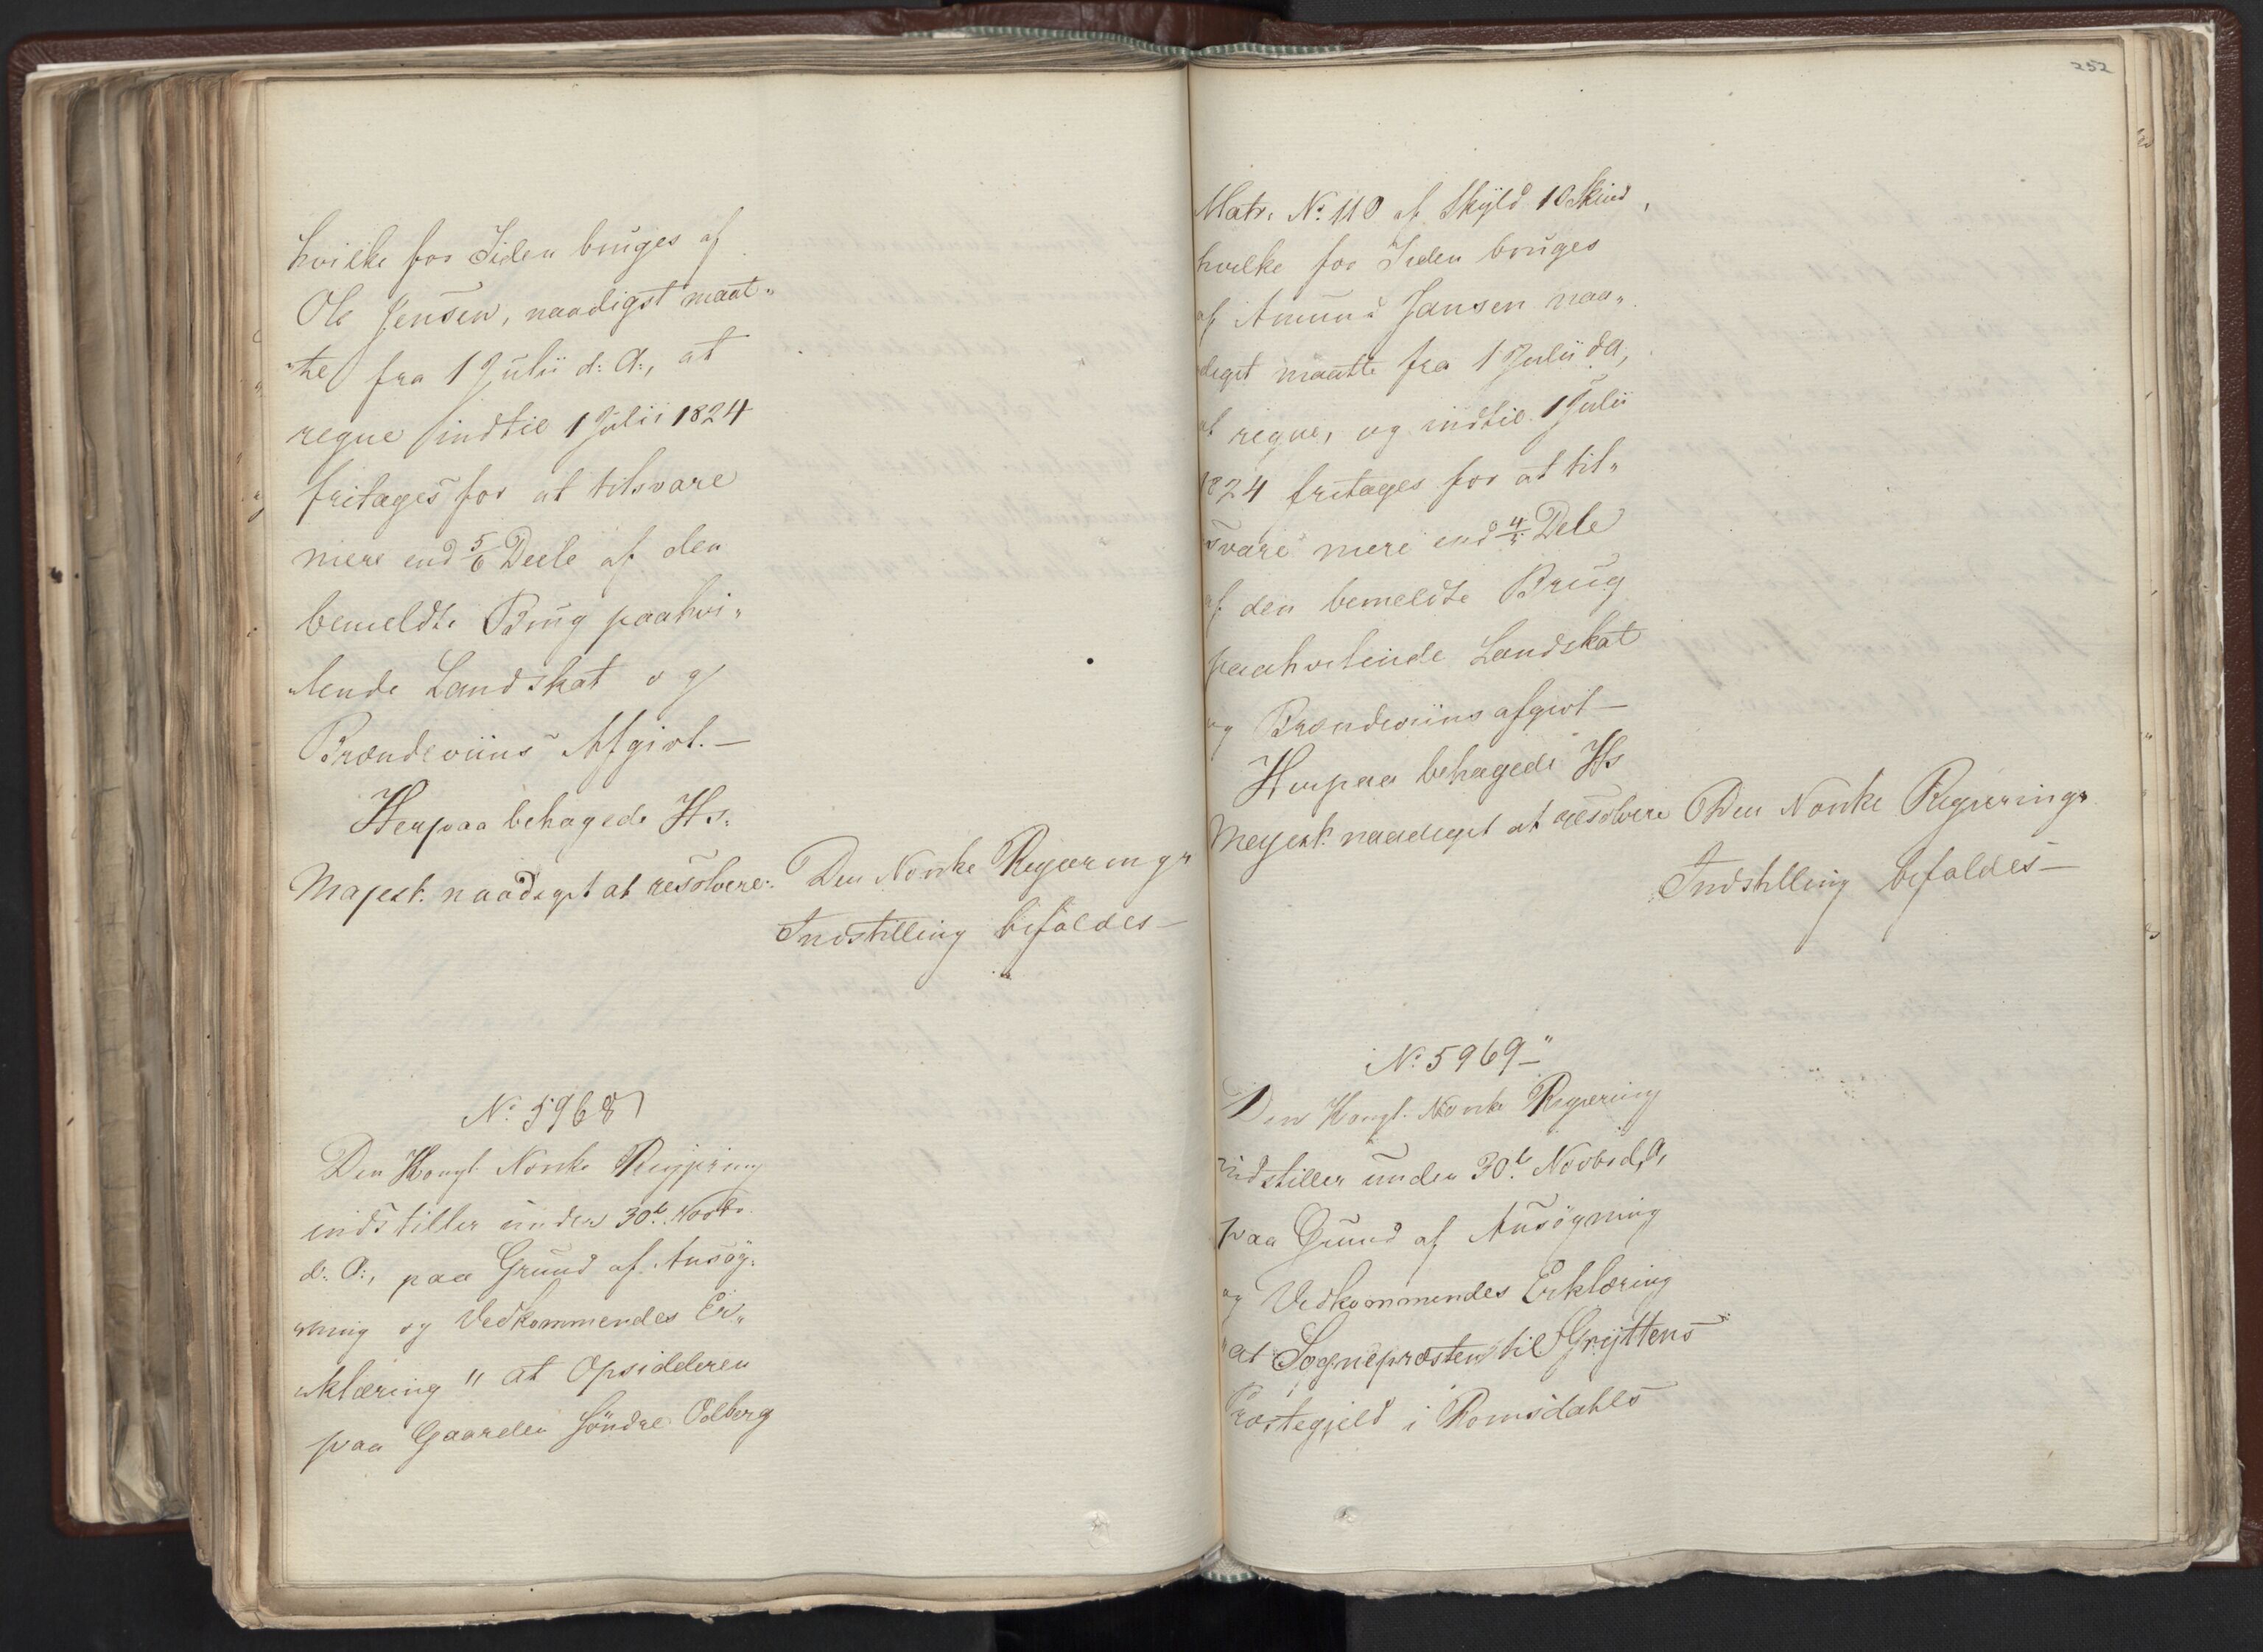 hvilke for Tiden bruges af
Ole Jensen, naadigst maat„
„te fra 1 Julii d: A:, at
regne indtil 1 Julii 1824
fritages for at tilsvare
mere end 5/6 Deele af den
bemeldte Brug paahvi„
lende Landskat og
Brændeviins Afgivt.—
Herpaa behagede Hs:
Majest: naadigst at resolvere: Den Norske Regjerings
Indstilling bifaldes—
No 5968
Den Kongl. Norske Regjering
indstiller under 30te Novbr.
d: A:, paa Grund af Ansøg:
ning og Vedkommendes Er„
klæring „ at Opsidderen
paa Gaarden Søndre Odberg
252
Matr. No 110 af Skyld 10 Skind,
hvilke for Tiden bruges
af Amund Jansen naa„
digst maatte fra 1 Julii d.A,
at regne, og indtil 1 Julii
1824 fritages for at til„
svare mere end 4/5 Dele
af den bemeldte Brug
paahvilende Landskat
og Brændeviinsafgivt—
Herpaa behagede Hs
Mejest: naadigst at resolvere Den Norske Regjerings
Indstilling bifaldes—
No 5969—"
Den Kongl. Norske Regjering
indstiller under 30te Novbr d. A,
paa Grund af Ansøgning
og Vedkommendes Erklæring
"at Sognepræsten til Gryttens
Præstegjeld i Romsdahls